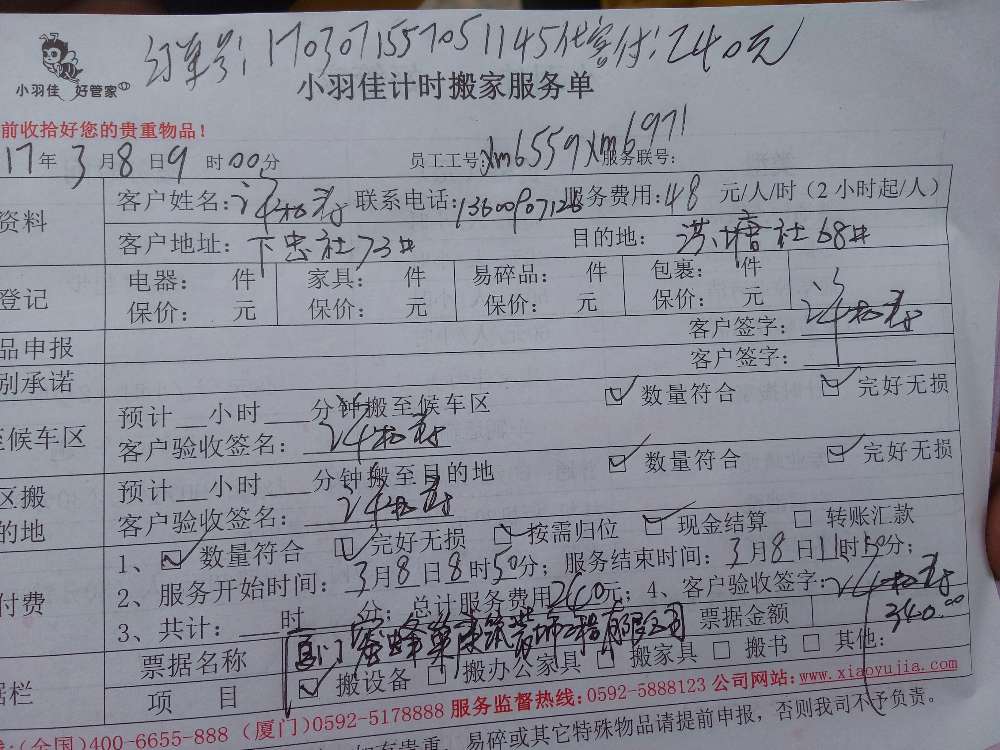 订单号：1703071557051145代客付：240元
小羽佳 好管家
小羽佳计时搬家服务单
前收拾好您的贵重物品！
17年3月8日9时00分 员工工号：xm6559xm6971 服务联号：
资料 客户姓名： 联系电话： 服务费用：48元/人/时（2小时起/人）
客户地址：下忠社73# 目的地：洪塘社68#
登记 电器： 件 家具： 件 易碎品： 件 包裹： 件
保价： 元 保价： 元 保价： 元 保价： 元
品申报 客户签字：
别承诺 客户签字：
至候车区 预计__小时___分钟搬至候车区 数量符合 完好无损
客户验收签名：
区搬 预计__小时___分钟搬至目的地 数量符合 完好无损
的地 客户验收签名：
1、 数量符合 完好无损 按需归位 现金结算 转账汇款
付费 2、服务开始时间：3月8日8时50分；服务结束时间：3月8日11时50分；
3、共计：___时___分；总计服务费用240元；4、客户验收签字：
据栏 票据名称 票据金额 340.00
项 目 搬设备 搬办公家具 搬家具 搬书 其他：
线：(全国)400-6655-888 (厦门)0592-5178888 服务监督热线：0592-5888123 公司网站：www.xiaoyujia.com
如有贵重、易碎或其它特殊物品请提前申报，否则我司不予负责。